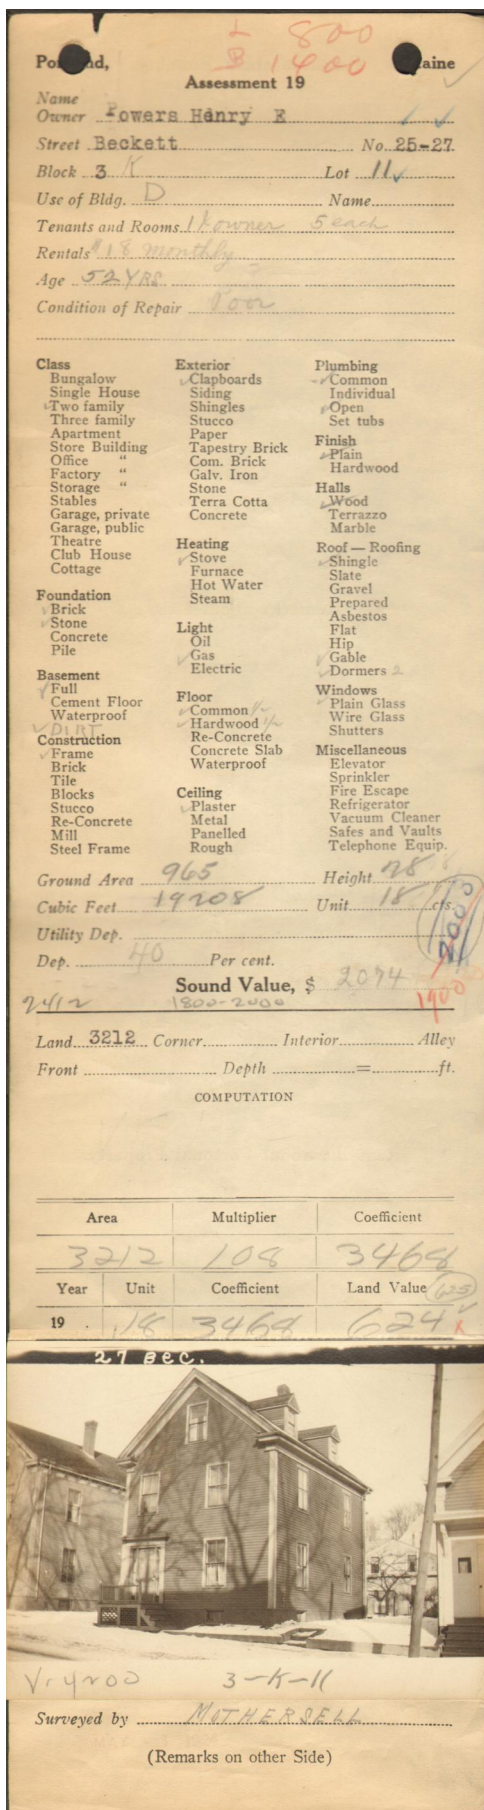 L 800
B 1400
Portland, Maine
Assessment 19
Name
Owner Powers Henry E
Street Beckett No. 25-27
Block 3 K Lot 11
Use of Bldg. D Name
Tenants and Rooms 1 owner 5 each
Rentals $18 monthly
Age 52 YRS
Condition of Repair Poor
Class
Bungalow
Single House
✓Two family
Three family
Apartment
Store Building
Office "
Factory "
Storage "
Stables
Garage, private
Garage, public
Theatre
Club House
Cottage
Foundation
✓Brick
✓Stone
Concrete
Pile
Basement
✓Full
Cement Floor
Waterproof
✓DIRT
Construction
✓Frame
Brick
Tile
Blocks
Stucco
Re-Concrete
Mill
Steel Frame
Exterior
✓Clapboards
Siding
Shingles
Stucco
Paper
Tapestry Brick
Com. Brick
Galv. Iron
Stone
Terra Cotta
Concrete
Heating
✓Stove
Furnace
Hot Water
Steam
Light
Oil
✓Gas
Electric
Floor
✓Common 1/2
✓Hardwood 1/2
Re-Concrete
Concrete Slab
Waterproof
Ceiling
✓Plaster
Metal
Panelled
Rough
Plumbing
✓Common
Individual
✓Open
Set tubs
Finish
✓Plain
Hardwood
Halls
✓Wood
Terrazzo
Marble
Roof — Roofing
✓Shingle
Slate
Gravel
Prepared
Asbestos
Flat
Hip
✓Gable
✓Dormers 2
Windows
✓Plain Glass
Wire Glass
Shutters
Miscellaneous
Elevator
Sprinkler
Fire Escape
Refrigerator
Vacuum Cleaner
Safes and Vaults
Telephone Equip.
Ground Area 965 Height 28
Cubic Feet 19208 Unit 18 cts.
2000
Utility Dep.
Dep. 40 Per cent.
Sound Value, $ 2074
1900
2412 1800-2000
Land 3212 Corner Interior Alley
Front Depth = ft.
COMPUTATION
Area Multiplier Coefficient
3212 108 3468
Year Unit Coefficient Land Value 625
19 . .18 3468 624
27 Bec.
V-4200 3-K-11
Surveyed by MOTHERSELL
(Remarks on other Side)